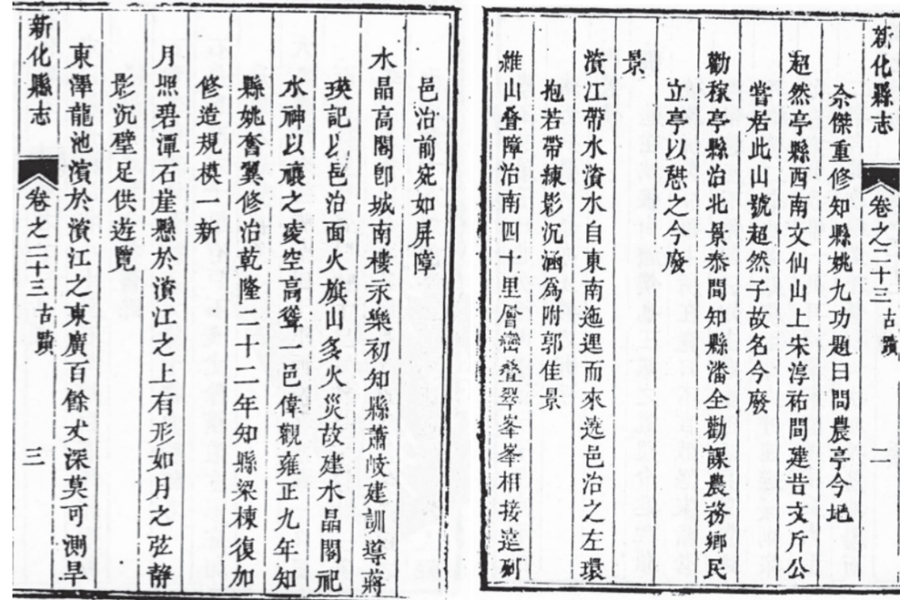 新化縣志 卷之二十三 古蹟 二
奈傑重修知縣姚九功題曰問農亭今圮
超然亭縣西南文仙山上宋淳祐間建昔文斤公
嘗居此山號超然子故名今廢
勸稼亭縣治北景泰間知縣潘全勸課農務鄉民
立亭以憇之今廢
景
濱江帶水濱水自東南迤邐而來遶邑治之左環
抱若帶練影沉涵為附郭佳景
維山叠障治南四十里層巒叠翠峯峯相接遠列
邑治前宛如屏障
水晶高閣卽城南樓永樂初知縣蕭岐建訓導蔣
瑛記以邑治面火旗山多火災故建水晶閣祀
水神以禳之凌空高聳一邑偉觀雍正九年知
縣姚奮翼修治乾隆二十二年知縣梁棟復加
修造規模一新
月照碧潭石崖懸於濱江之上有形如月之弦靜
影沉壁足供遊覽
東澤龍池濱於濱江之東廣百餘丈深莫可測旱
新化縣志 卷之二十三 古蹟 三